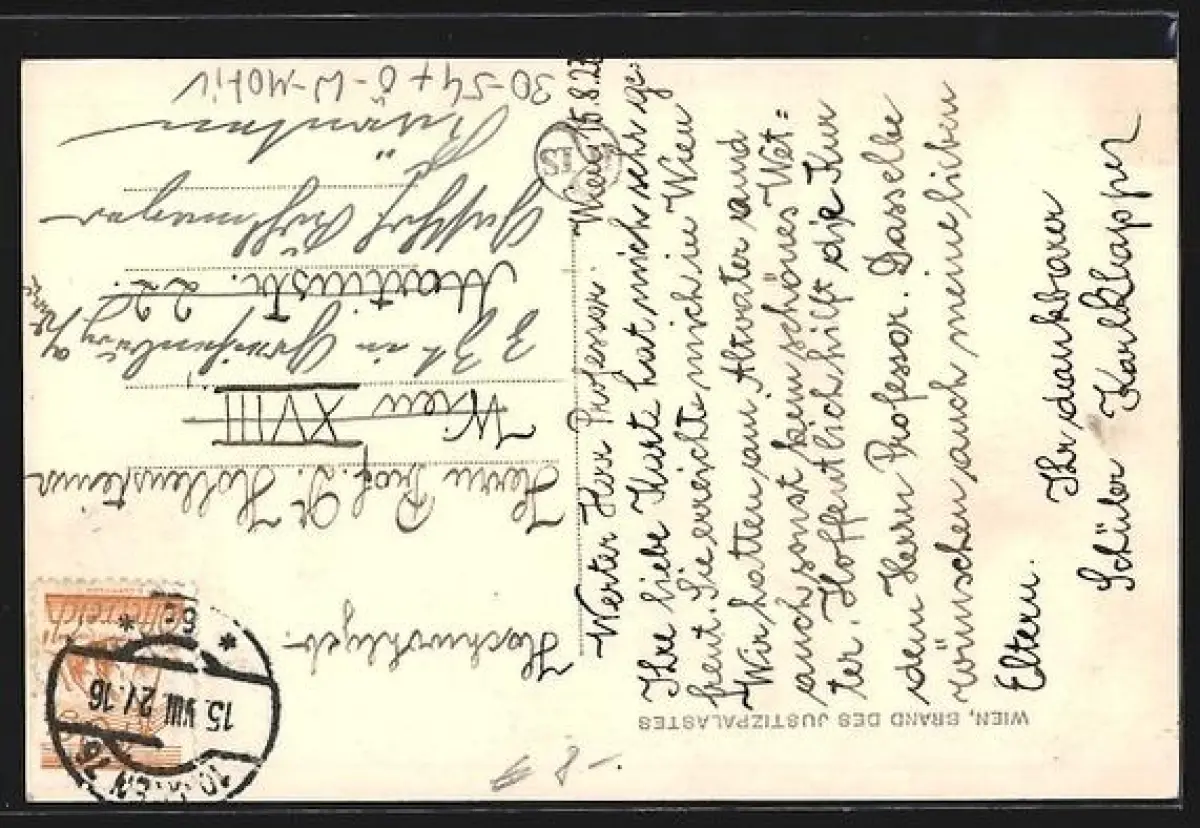 WIEN, BRAND DES JUSTIZPALASTES
Wien, 15.8.27
Werter Herr Professor!
Ihre liebe Karte hat mich sehr ge-
freut. Sie erreichte mich in Wien
Wir hatten am Altvater und
auch sonst kein schönes Wet=
ter. Hoffentlich hilft die Kur
dem Herrn Professor. Dasselbe
wünschen auch meine lieben
Eltern.
Ihr dankbarer
Schüler Karl Klapper
Hochwohlgeb.
Herrn Prof. Dr. Hollensteiner
Wien XVIII
Z. Zt. in
Martinstr. 22.
Gasthof
30-54 + Ö-W-Motiv
-8-
Österreich
WIEN
15. VIII 27. 16